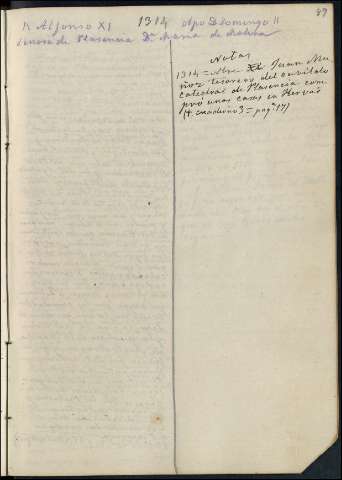 89
R. Alfonso XI 1314 obpo D. Domingo II
Señora de Plasencia Dª Maria de Molina
Notas
1314 = Juan Mu
ñoz tesorero del cabildo
catedral de Plasencia com
pró unas casas en Hervas
(4. cuaderno 3 = pagª 17)